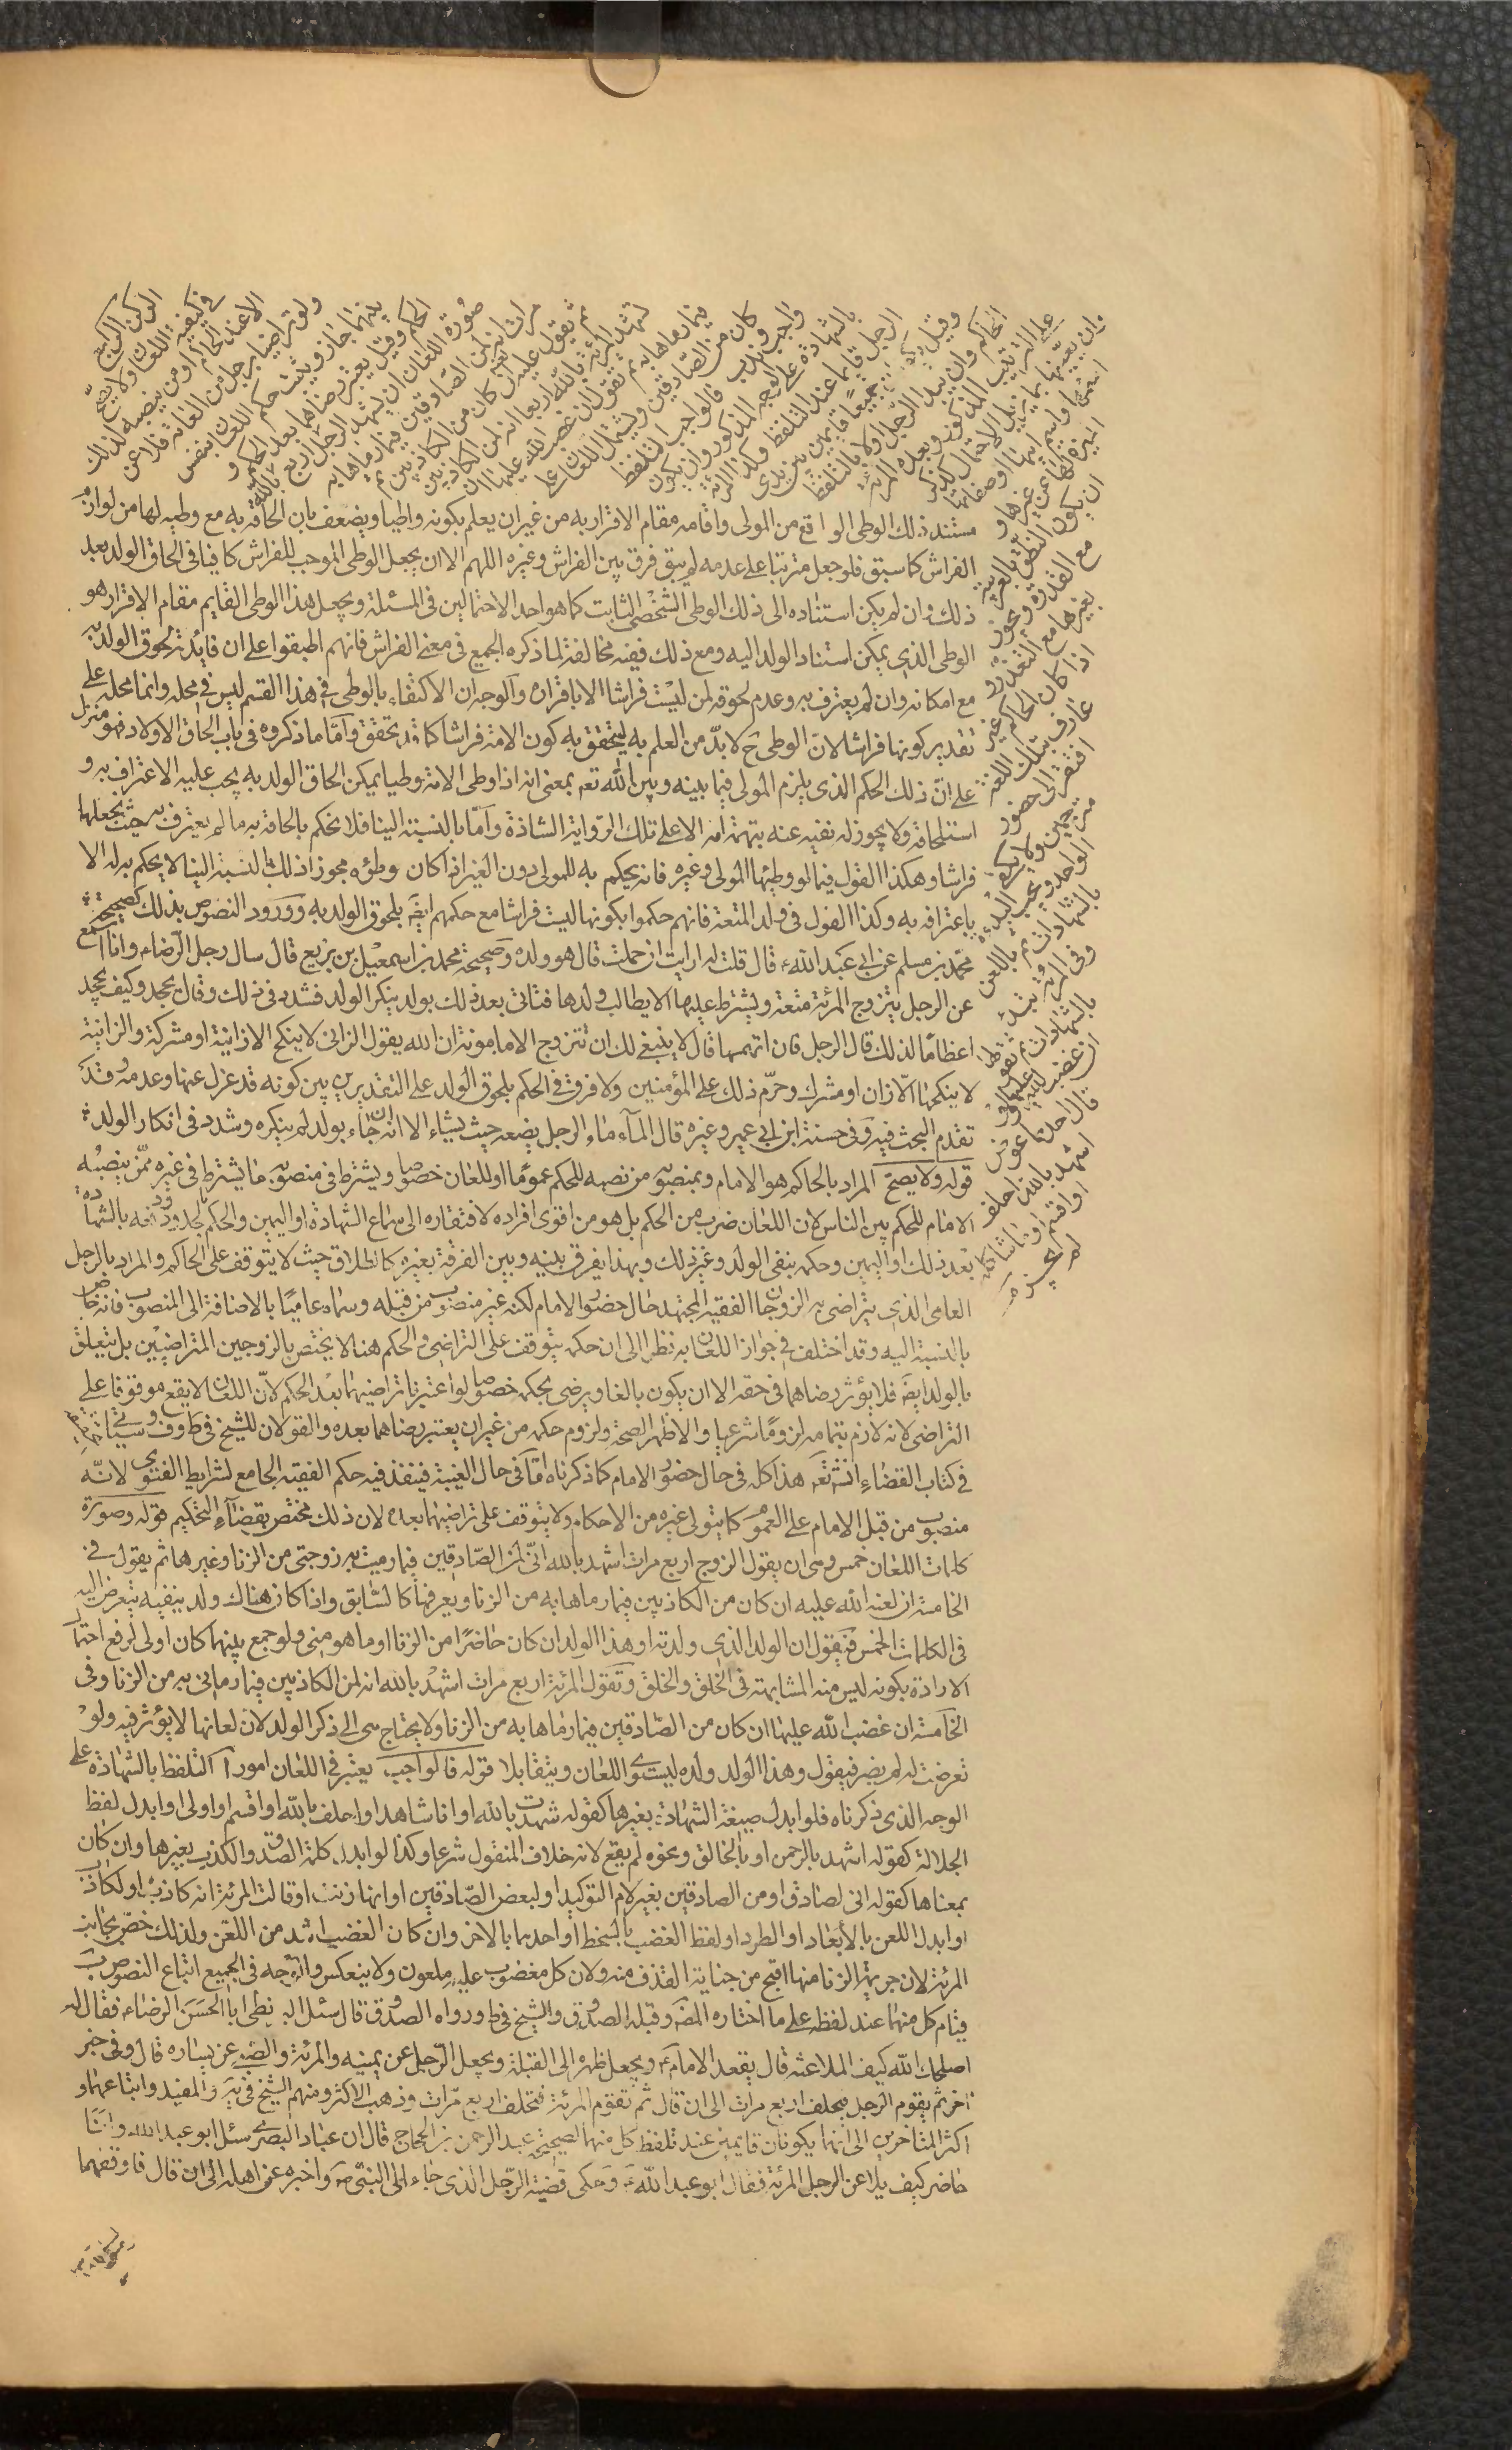 الركن الرابع
في كيفية اللعان ولا يصح
الا عند الحاكم او من ينصبه لذلك
ولو تراضيا برجل من العامة فلاعن
بينهما جاز ويثبت حكم اللعان بنفس
الحكم وقيل يعتبر رضاهما بعد الحكم و
صورة اللعان ان يشهد الرجل بالله اربع
مرات انه لمن الصادقين فيما رماها به
ثم يقول عليه لعنة الله ان كان من الكاذبين ثم
تشهد المرئة بالله اربعا انه لمن الكاذبين
فيما رماها به ثم تقول ان غضب الله عليها ان
كان من الصادقين ويشتمل اللعان على
واجب وندب فالواجب التلفظ
بالشهادة على الوجه المذكور وان يكون
الرجل قائما عند التلفظ وكذا المرئة
وقيل يكونان جميعا قايمين بين يدى
الحاكم وان يبدء الرجل اولا بالتلفظ
على الترتيب المذكور وبعده المرئة
وان يعينها بما يزيل الاحتمال كذكر
اسمها واسم ابيها او صفاتها
المميزة لها عن غيرها و
ان يكون النطق بالعربية
مع القدرة ويجوز
بغيرها مع التعذر و
اذا كان الحاكم غير
عارف بتلك اللغة
افتقر الى حضور
مترجمين ولا يكفى
الواحد ويجب البدءة
بالشهادات ثم باللعن
وفي المرئة تبدء
بالشهادات ثم تقول
ان غضب الله عليها ولو
قال احدهما عوض
اشهد بالله احلف
او اقسم او ما شاكله
لم يجز
مستند ذلك الوطى الواقع من المولى واقامه مقام الاقرار به من غير ان يعلم بكونه واطيا ويضعف بان الحاقه به مع وطيه لها من لوازم
الفراش كما سبق فلو جعل مترتبا على عدمه لم يبق فرق بين الفراش وغيره اللهم الا ان يجعل الوطى الموجب للفراش كافيا في الحاق الولد بعد
ذلك وان لم يكن استناده الى ذلك الوطى الشخصى الثابت كما هو احد الاحتمالين في المسئلة ويجعل هذا الوطى القايم مقام الاقرار هو
الوطى الذي يمكن استناد الولد اليه ومع ذلك ففيه مخالفة لما ذكره الجميع في معنى الفراش فانهم اطبقوا على ان فايدته لحوق الولد به
مع امكانه وان لم يعترف به وعدم لحوقه لمن ليست فراشا الا باقراره والوجه ان الاكتفاء بالوطى في هذا القسم ليس في محله وانما محله على
تقدير كونها فراشا لان الوطى ح لا بد من العلم به ليتحقق به كون الامة فراشا كما قد تحقق واما ما ذكروه في باب الحاق الاولاد فهو منزل
على ان ذلك الحكم الذى يلزم المولى فيما بينه وبين الله تعم بمعنى انه اذا وطى الامة وطيا يمكن الحاق الولد به يجب عليه الاعتراف به و
استلحاقه ولا يجوز له نفيه عنه بتهمة امه الا على تلك الرواية الشاذة واما بالنسبة الينا فلا نحكم بالحاقه به ما لم يعترف به حيث يجعلها
فراشا وهكذا القول فيما لو وطئها المولى وغيره فانه يحكم به للمولى دون الغير اذا كان وطؤه مجوزا ذلك بالنسبة الينا لا يحكم به له الا
باعترافه به وكذا القول في ولد المتعة فانهم حكموا بكونها ليست فراشا مع حكمهم ايضا بلحوق الولد به وورود النصوص بذلك كصحيحة
محمد بن مسلم عن ابي عبد الله ع قال قلت له ارايت ان حملت قال هو ولده وصحيحة محمد بن اسمعيل بن بزيع قال سال رجل الرضاء وانا اسمع
عن الرجل يتزوج المرئة متعة ويشترط عليها الا يطالب ولدها فتاتى بعد ذلك بولد ينكر الولد فشدد في ذلك وقال يجحد وكيف يجحد
اعظاما لذلك قال الرجل فان اتهمها قال لا ينبغى لك ان تتزوج الا مامونة ان الله يقول الزانى لا ينكح الا زانية او مشركة والزانية
لا ينكحها الا زان او مشرك وحرم ذلك على المؤمنين ولا فرق في الحكم بلحوق الولد على التقديرين بين كونه قد عزل عنها وعدمه وقد
تقدم البحث فيه وفي حسنة ابن ابي عمير وغيره قال الماء ماء الرجل يضعه حيث يشاء الا انه ان جاء بولد لم ينكره وشدد في انكار الولد
قوله ولا يصح المراد بالحاكم هو الامام وبمنصوبه من نصبه للحكم عموما او للعان خصوصا ويشترط في منصوبه ما يشترط في غيره ممن ينصبه
الامام للحكم بين الناس لان اللعان ضرب من الحكم بل هو من اقوى افراده لافتقاره الى سماع الشهادة او اليمين والحكم بالحدود ودفعه بالشهادة
بعد ذلك او اليمين وحكمه بنفى الولد وغير ذلك وبهذا يفرق بينه وبين الفرقة بغيره كالطلاق حيث لا يتوقف على الحاكم والمراد بالرجل
العامى الذي يتراضى به الزوجان الفقيه المجتهد حال حضور الامام لكنه غير منصوب من قبله وسماه عاميا بالاضافة الى المنصوب فانه خاص
بالنسبة اليه وقد اختلف في جواز اللعان به نظرا الى ان حكمه يتوقف على التراضى والحكم هنا لا يختص بالزوجين المتراضيين بل يتعلق
بالولد ايضا فلا يؤثر رضاهما في حقه الا ان يكون بالغا ويرضى بحكمه خصوصا لو اعتبرنا تراضيهما بعد الحكم لان اللعان لا يقع موقوفا على
التراضى لانه لازم بتمامه لزوما شرعيا والاظهر الصحة ولزوم حكمه من غير ان يعتبر رضاهما بعده والقولان للشيخ في ط وف وسيأتى
في كتاب القضاء انشتعم هذا كله في حال حضور الامام كما ذكرناه اما في حال الغيبة فينفذ فيه حكم الفقيه الجامع لشرايط الفتوى لانه
منصوب من قبل الامام على العموم كما يتولى غيره من الاحكام ولا يتوقف على تراضيهما بعده لان ذلك مختص بقضاء التحكيم قوله وصورة
كلمات اللعان خمس وهى ان يقول الزوج اربع مرات اشهد بالله انى لمن الصادقين فيما رميت به زوجتى من الزنا وغيرها ثم يقول في
الخامسة ان لعنة الله عليه ان كان من الكاذبين فيما رماها به من الزنا ويعرفها كالسابق واذا كان هناك ولد ينفيه يتعرض اليه
في الكلمات الخمس فيقول ان الولد الذي ولدته او هذا الولد ان كان حاضرا من الزنا او ما هو منى ولو جمع بينهما كان اولى لرفع احتمال
الارادة بكونه ليس منه المشابهة في الخلق والخلق وتقول المرئة اربع مرات اشهد بالله انه لمن الكاذبين فيما رمانى به من الزنا وفي
الخامسة ان غضب الله عليها ان كان من الصادقين فيما رماها به من الزنا ولا يحتاج هى الى ذكر الولد لان لعانها لا يؤثر فيه ولو
تعرضت له لم يضر فيقول وهذا الولد ولده ليستوى اللعان ويتقابلا قوله فالواجب يعتبر في اللعان امور ا التلفظ بالشهادة على
الوجه الذي ذكرناه فلو ابدل صيغة الشهادة بغيرها كقوله شهدت بالله او انا شاهد او احلف بالله او اقسم او اولى او ابدل لفظ
الجلالة كقوله اشهد بالرحمن او بالخالق ونحوه لم يقع لانه خلاف المنقول شرعا وكذا لو ابدل كلمة الصدق والكذب بغيرها وان كان
بمعناها كقوله انى لصادق او من الصادقين بغير لام التوكيد او لبعض الصادقين او انها زنت او قالت المرئة انه كاذب او لكاذب
او ابدل اللعن بالابعاد او الطرد او لفظ الغضب بالسخط او احدهما بالاخر وان كان الغضب اشد من اللعن ولذلك خص بجانب
المرئة لان جريمة الزنا منها اقبح من جناية القذف منه ولان كل مغضوب عليه ملعون ولا ينعكس والوجه في الجميع اتباع النصوص ب
قيام كل منهما عند لفظه على ما اختاره المصَ وقبله الصدوق والشيخ في ط ورواه الصدوق قال سئل البزنطى ابا الحسن الرضاء فقال له
اصلحك الله كيف الملاعنة قال يقعد الامام ويجعل ظهره الى القبلة ويجعل الرجل عن يمينه والمرئة والصبى عن يساره قال وفي خبر
اخر ثم يقوم الرجل فيحلف اربع مرات الى ان قال ثم تقوم المرئة فتحلف اربع مرات وذهب الاكثر ومنهم الشيخ في يه والمفيد واتباعهما و
اكثر المتاخرين الى انهما يكونان قايمين عند تلفظ كل منهما لصحيحة عبد الرحمن بن الحجاج قال ان عباد البصرى سئل ابو عبد الله وانا
حاضر كيف يلاعن الرجل المرئة فقال ابو عبد الله ع وحكى قضية الرجل الذى جاء الى النبى ص واخبره عن اهله الى ان قال فاوقفهما